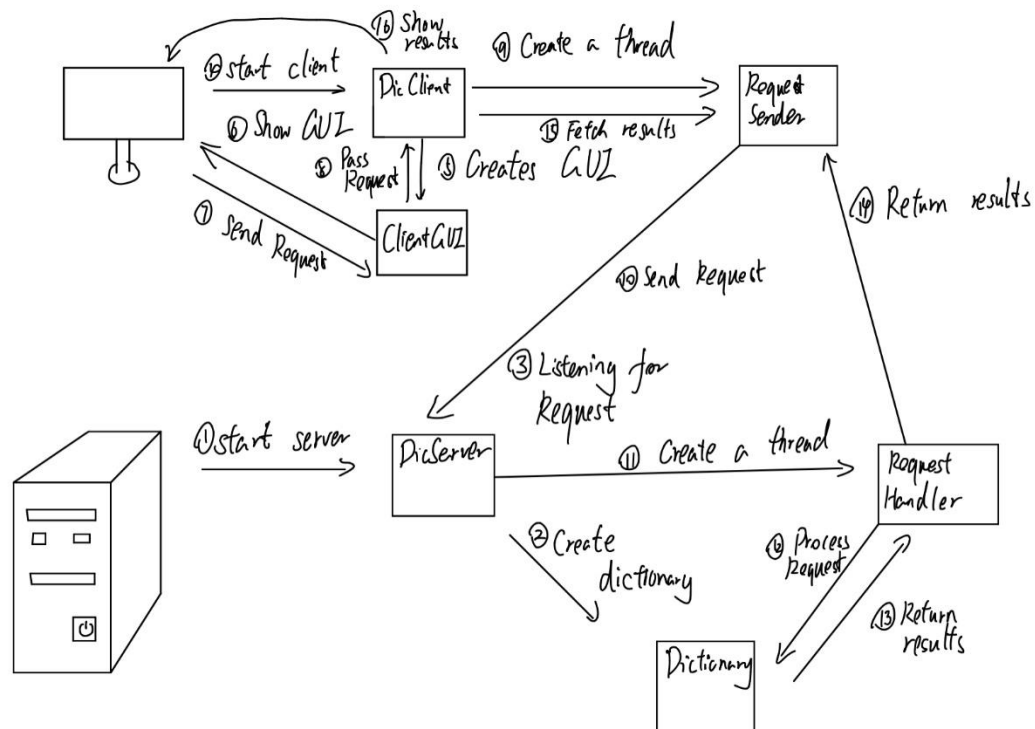 ⑯ Show
results
⑨ Create a thread
④ Start client
DicClient
Request
Sender
⑥ Show GUI
⑮ Fetch results
⑧ Pass
Request
⑤ Creates GUI
⑦ Send Request
ClientGUI
⑭ Return results
⑩ Send Request
③ Listening for
Request
① start server
DicServer
⑪ Create a thread
Request
Handler
② Create
dictionary
⑫ Process
Request
⑬ Return
results
Dictionary